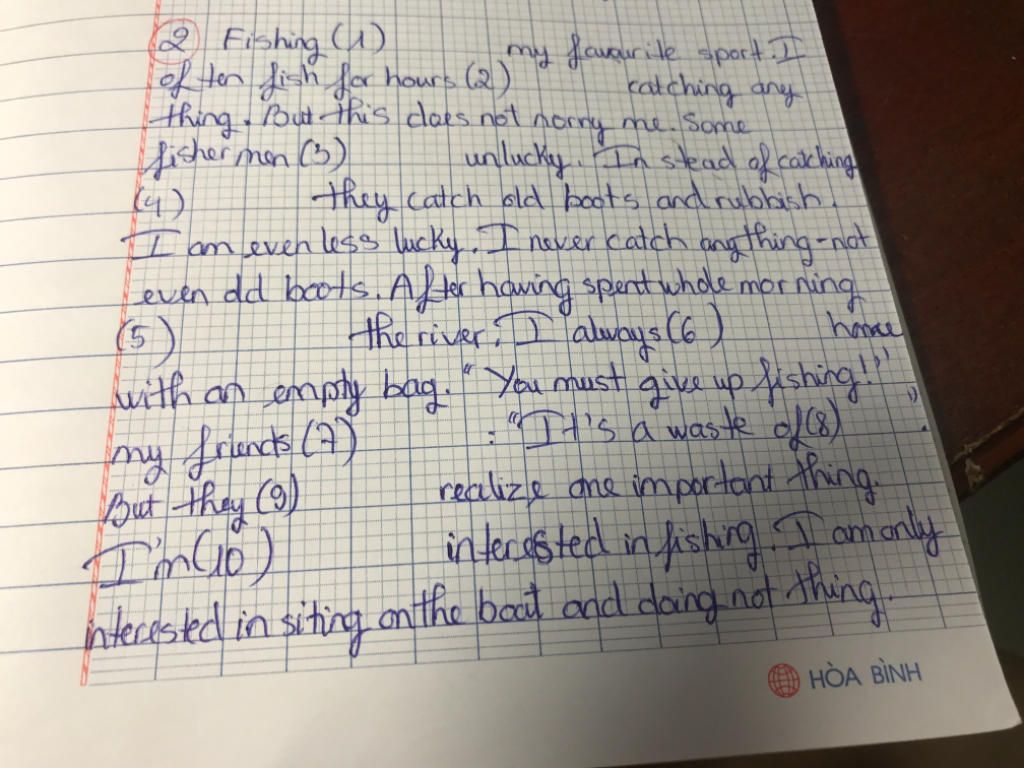 2 Fishing (1) my favourite sport. I
often fish for hours (2) catching any
thing. But this does not worry me. Some
fishermen (3) unlucky. In stead of catching
(4) they catch old boots and rubbish.
I am even less lucky. I never catch angthing - not
even old boots. After having spent whole morning
(5) the river. I always (6) home
with an empty bag. "You must give up fishing!"
my friends (7) : "It's a waste of (8) ".
But they (9) realize one important thing.
I'm (10) interested in fishing. I am only
interested in siting on the boat and doing not thing.
HÒA BÌNH